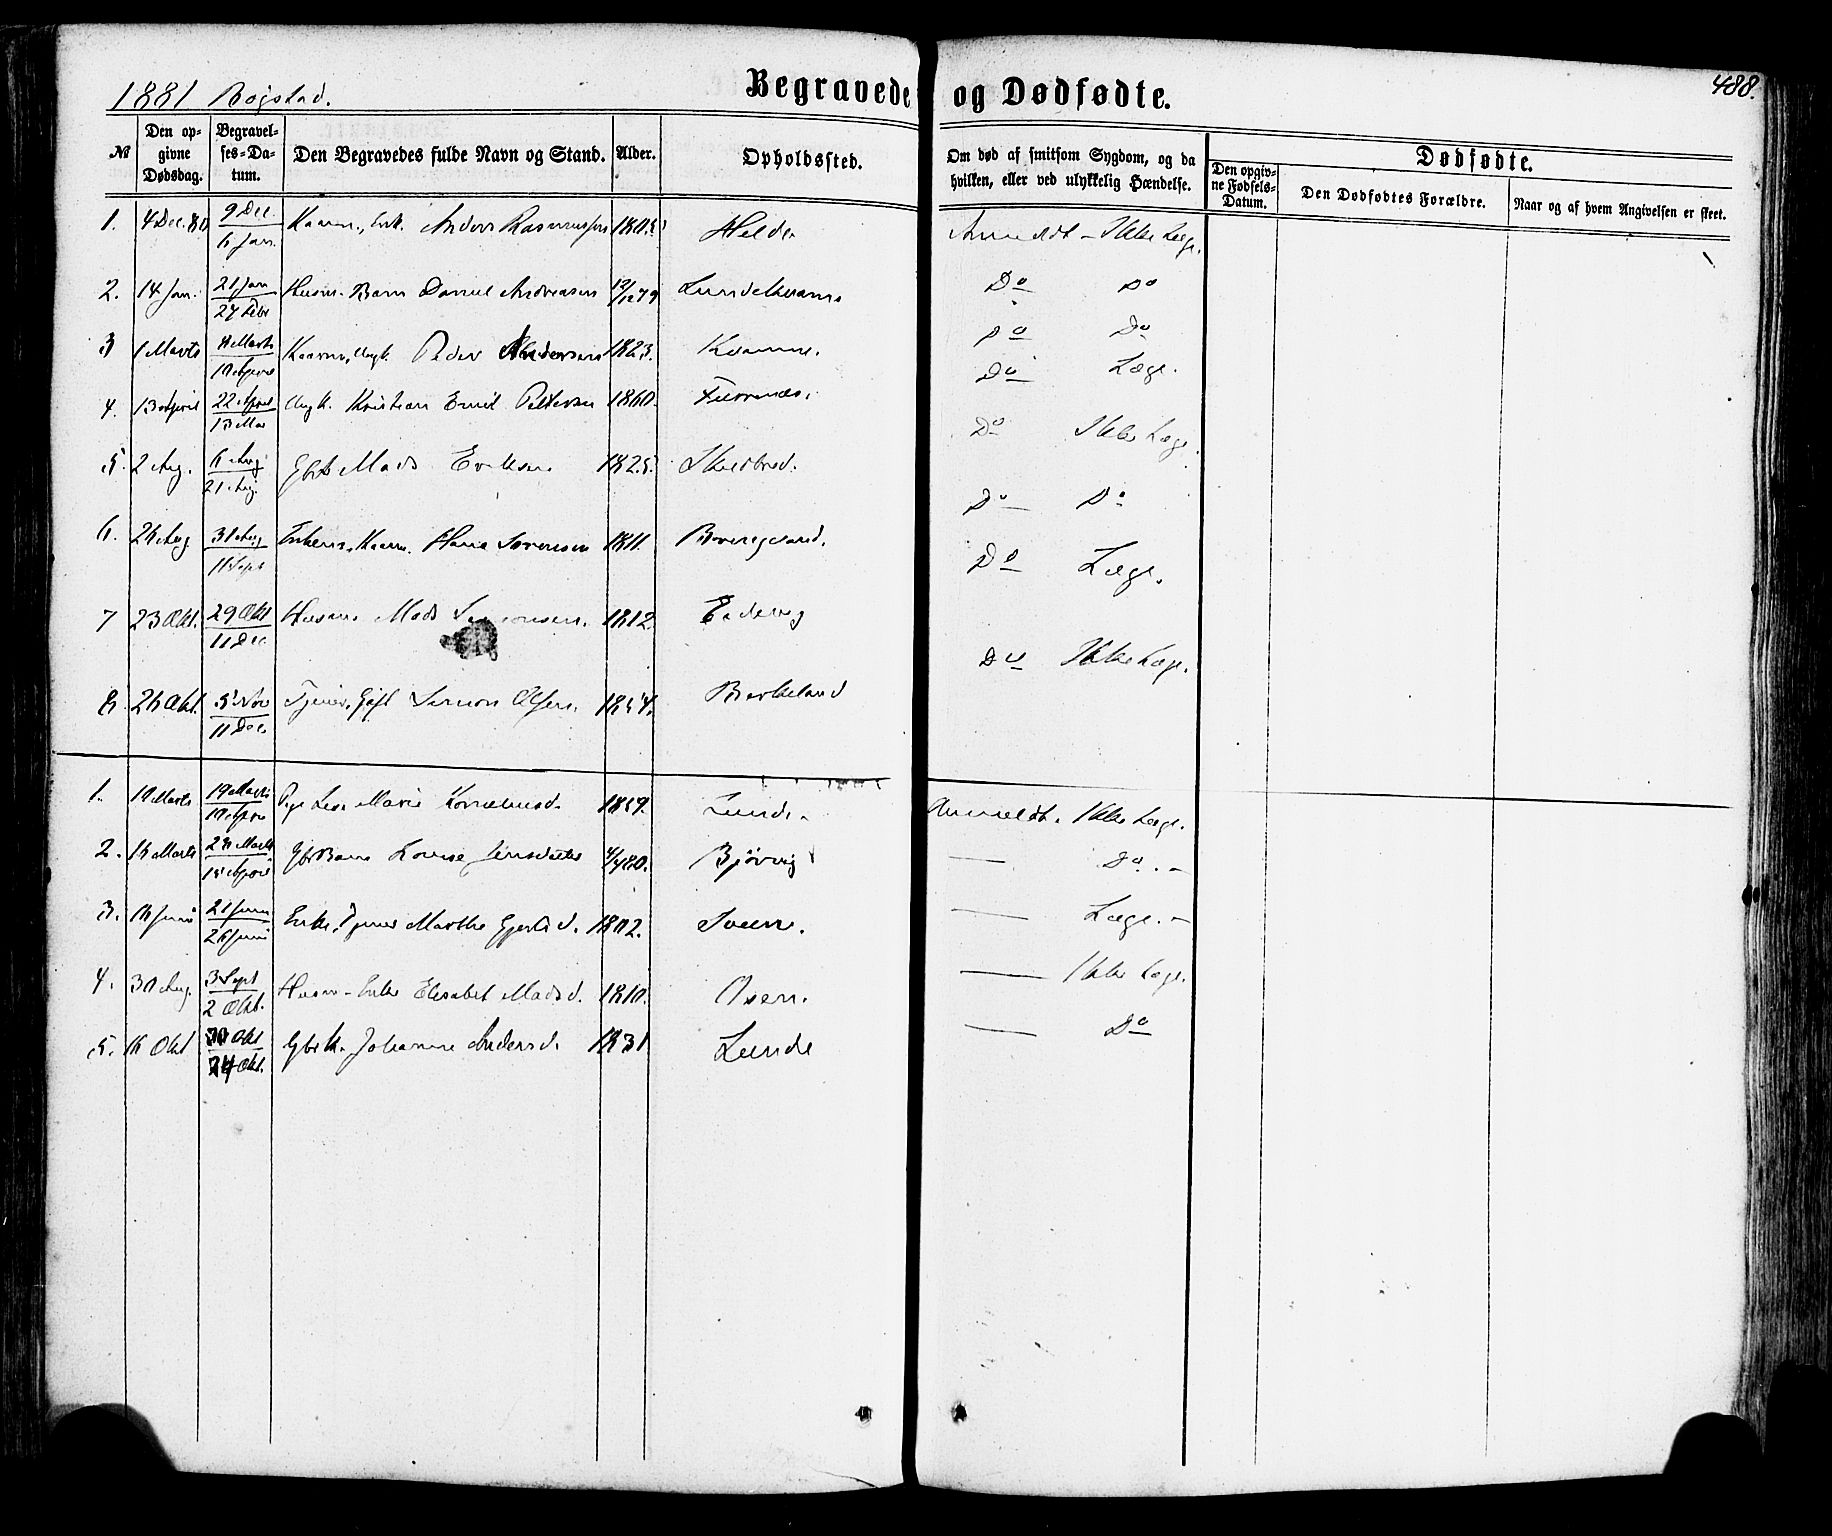 1881 Bogstad.
Begravede og Dødfødte.
488.
№
Den opgivne Dødsdag.
Begravelses-Datum.
Den Begravedes fulde Navn og Stand.
Alder.
Opholdssted.
Om død af smitsom Sygdom, og da hvilken, eller ved ulykkelig Hændelse.
Dødfødte.
Den opgivne Fødsels-Datum.
Den Dødfødtes Forældre.
Naar og af hvem Angivelsen er skeet.
1. 4 Dec. 80 9 Dec. / 6 Jan. Kaarm., Enk. Anders Rasmussen 1805 Helde Anmeldt - Ikke Læge.
2. 14 Jan. 21 Jan / 27 Febr Husm. Barn Daniel Andreasen 12/12 79 Do Do
3 1 Marts 8 Marts / 10 April Kaarm, Ungk. Peder Andersen 1823. Kvamme. Do Do
4. 13 April 22 April / 13 Mai Ungk. Kristian Emil Pettersen 1860. Furenæs. Do Læge.
5. 2 Aug. 6 Aug / 21 Aug. Gbr Mads Eriksen 1825. Do Ikke Læge
6. 26 Aug 31 Aug / 11 Sept Enkem. Kaarm. Hans Sørensen 1811. Do Do
7 23 Okt. 29 Okt / 11 Dec. Husm. Mads Simonsen. 1812. Eidevig Do Læge.
8. 26 Okt. 5 Nov / 11 Dec. Tjener, Gift Simon Olsen. 1854. Birkeland Do Ikke Læge.
1. 10 Marts 19 Marts / 10 April Pige Marie Korneliusd. 1859. Lunde. Anmeldt. Ikke Læge.
2. 16 Marts 28 Marts / 15 April Gbr Barn Lovise Jensdatter 4/4 80. Bjørvig — Do. -
3. 16 Juni 21 Juni / 26 Juni Enke, Tjener Marthe Gjertsd. 1802. Sveen. — Læge. -
4. 30 Aug. 3 Sept / 2 Okt. Husm. Enke Elisabet Madsd. 1810. Osen. — Ikke Læge.
5. 16 Okt Okt / 24 Okt. Gbr K. Johanne Andersd. 1831. Lunde — Do